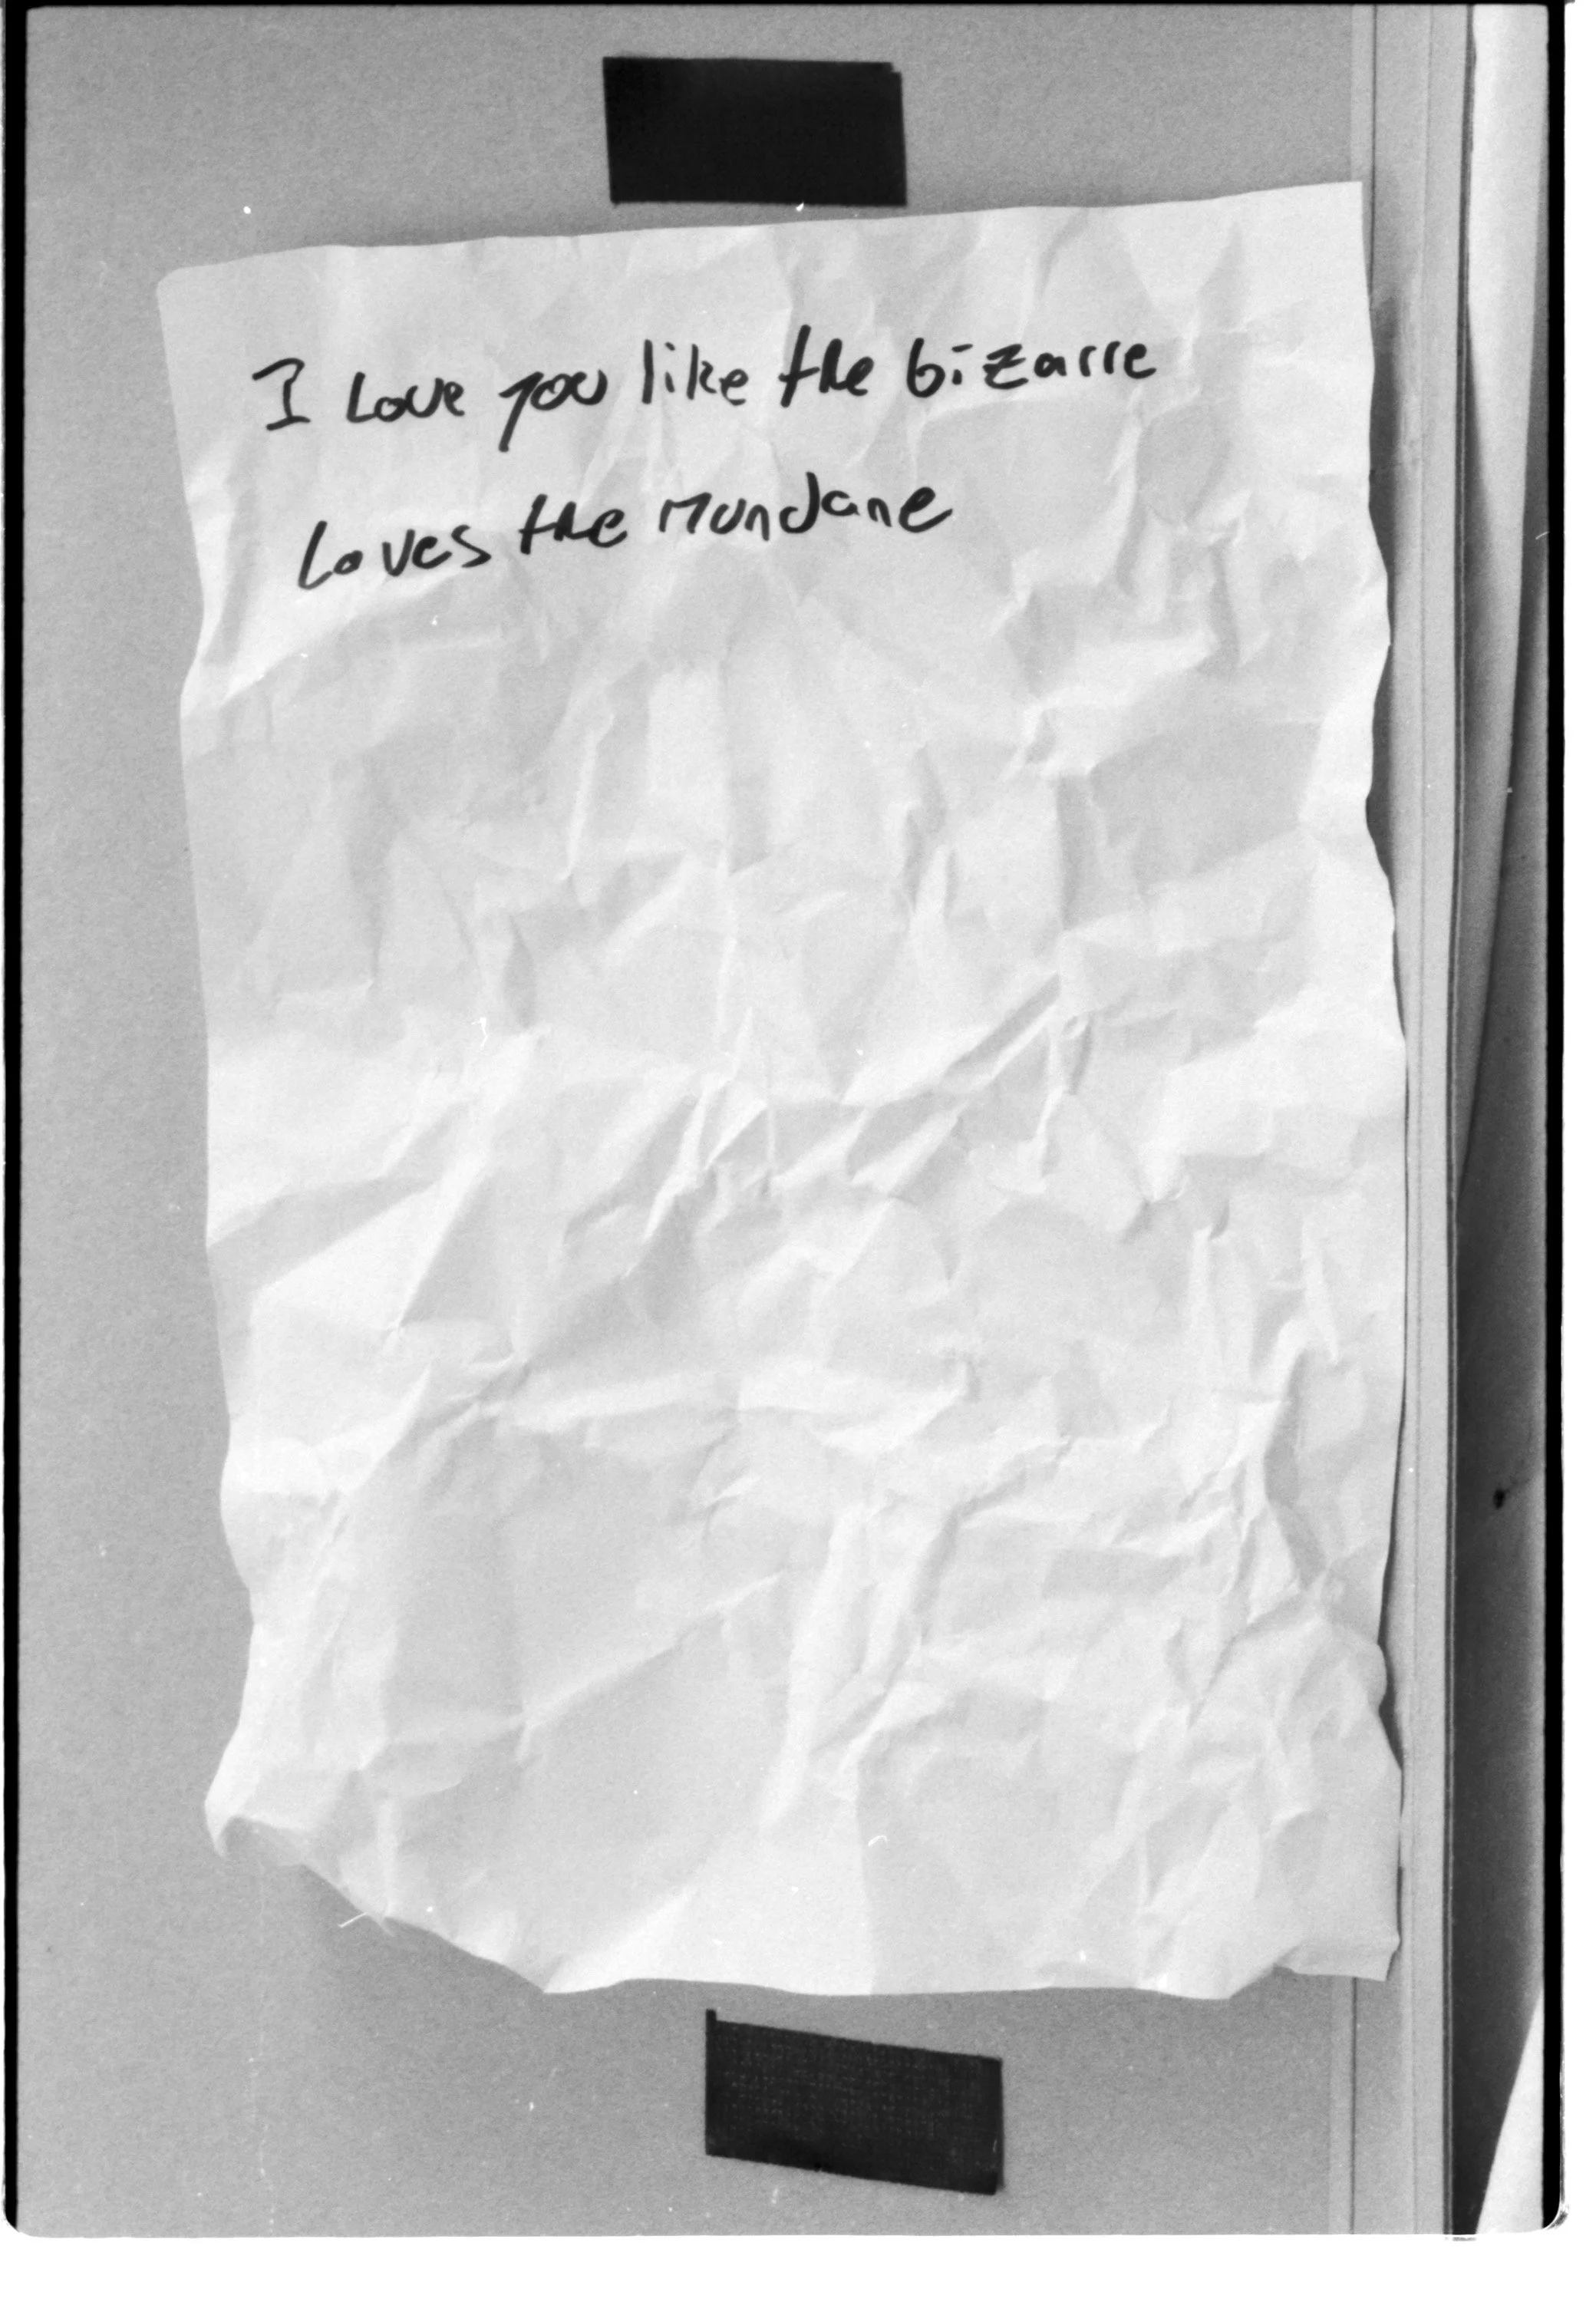 I Love you like the bizarre
Loves the Mundane